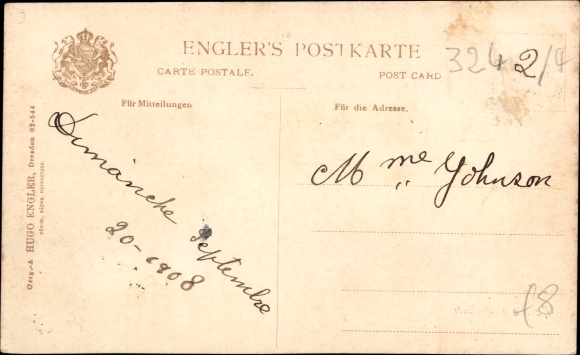 ENGLER'S POSTKARTE
CARTE POSTALE.
POST CARD
324 2/4
Für Mitteilungen
Für die Adresse.
Dimanche Septembre
20-1908
Mme Johnson
HUGO ENGLER, Dresden 02-544
£8